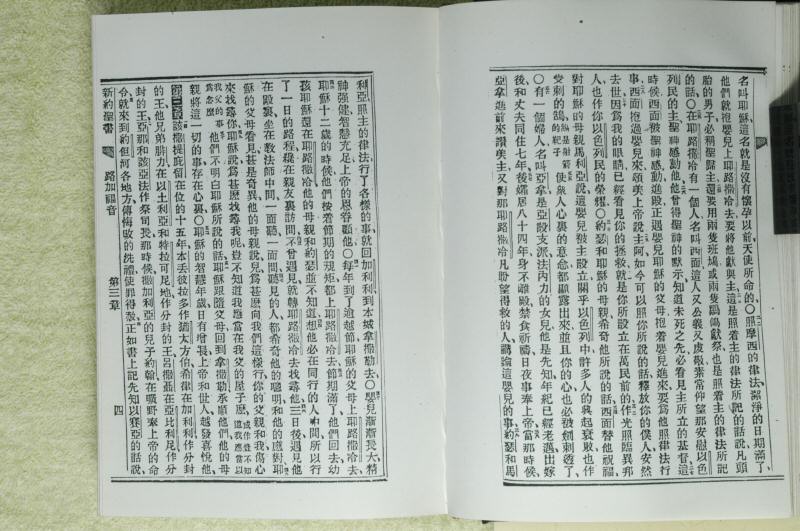 名叫耶穌這名就是沒有懷孕以前天使所命的〇照摩西的律法潔淨的日期滿了
他們就抱嬰兒上耶路撒冷去要將他獻與主這是照着主的律法所記的話說凡頭
胎的男子必稱聖歸主還要用兩隻班鳩或兩隻鴿獻祭也是照着主的律法所記
的話〇在耶路撒冷有一個人名叫西面這人又公義又虔敬素常仰望那安慰以色
列民的主聖神感動他他曾得聖神的默示知道未死之先必看見主所立的基督這
時候西面被聖神感動進殿正遇嬰兒耶穌的父母抱着嬰兒進來要爲他照律法行
事西面抱過嬰兒來頌美上帝說主阿如今可以照你所說的話釋放你的僕人安然
去世因爲我的眼睛已經看見你的拯救就是你所設立在萬民前的作光照臨異邦
人也作你以色列民的榮耀〇約瑟和耶穌的母親希奇他所說的話西面替他祝福
對耶穌的母親馬利亞說這嬰兒被主設立關乎以色列中許多人的興起衰敗也作
受刺的鵠 使衆人心裏的意念都顯露出來並且你的心也必被劍刺透了
〇有一個婦人名叫亞拿是亞設支派法內力的女兒他是先知年紀已經老邁出嫁
後和丈夫同住七年就孀居八十四年身不離殿禁食祈禱日夜事奉上帝當那時候
亞拿進前來讚美主又對那耶路撒冷凡盼望得救的人講論這嬰兒的事約瑟和馬
利亞照主的律法行了各樣的事就回加利利到本城拿撒勒去〇嬰兒漸漸長大精
神强健智慧充足上帝的恩眷顧他〇每年到了逾越節耶穌的父母上耶路撒冷去
孩耶穌還在耶路撒冷他的母親和約瑟並不知道想他必在同行的人中間所以行
了一日的路程纔在親友裏訪問不曾遇見就轉耶路撒冷去找尋他三日後遇見他
在殿裏坐在教法師中間一面聽一面問聽見的人都希奇他的聰明和他的應對耶
穌的父母看見甚是奇異他的母親說兒爲甚麽向我們這樣行你的父親和我傷心
來找尋你耶穌說爲甚麽找尋我呢豈不知道我應當在我父的屋子麽
他們不明白耶穌所說的話耶穌跟隨父母回到拿撒勒承順他們他的母
親將這一切的事存在心裏〇耶穌的智慧年歲日有增長上帝和世人越發喜悅他
第三章該撒提庇留在位的十五年本丟彼拉多作猶太方伯希律在加利利作分封
的王他兄弟腓力在以土利亞和特拉可尼地作分封的王呂撒聶在亞比利尼作分
封的王亞那和該亞法作祭司長那時候撒加利亞的兒子約翰在曠野奉上帝的命
令就來到約但河各地方傳悔改的洗禮使罪得赦正如書上記先知以賽亞的話說
新約聖書 路加福音 第三章 四